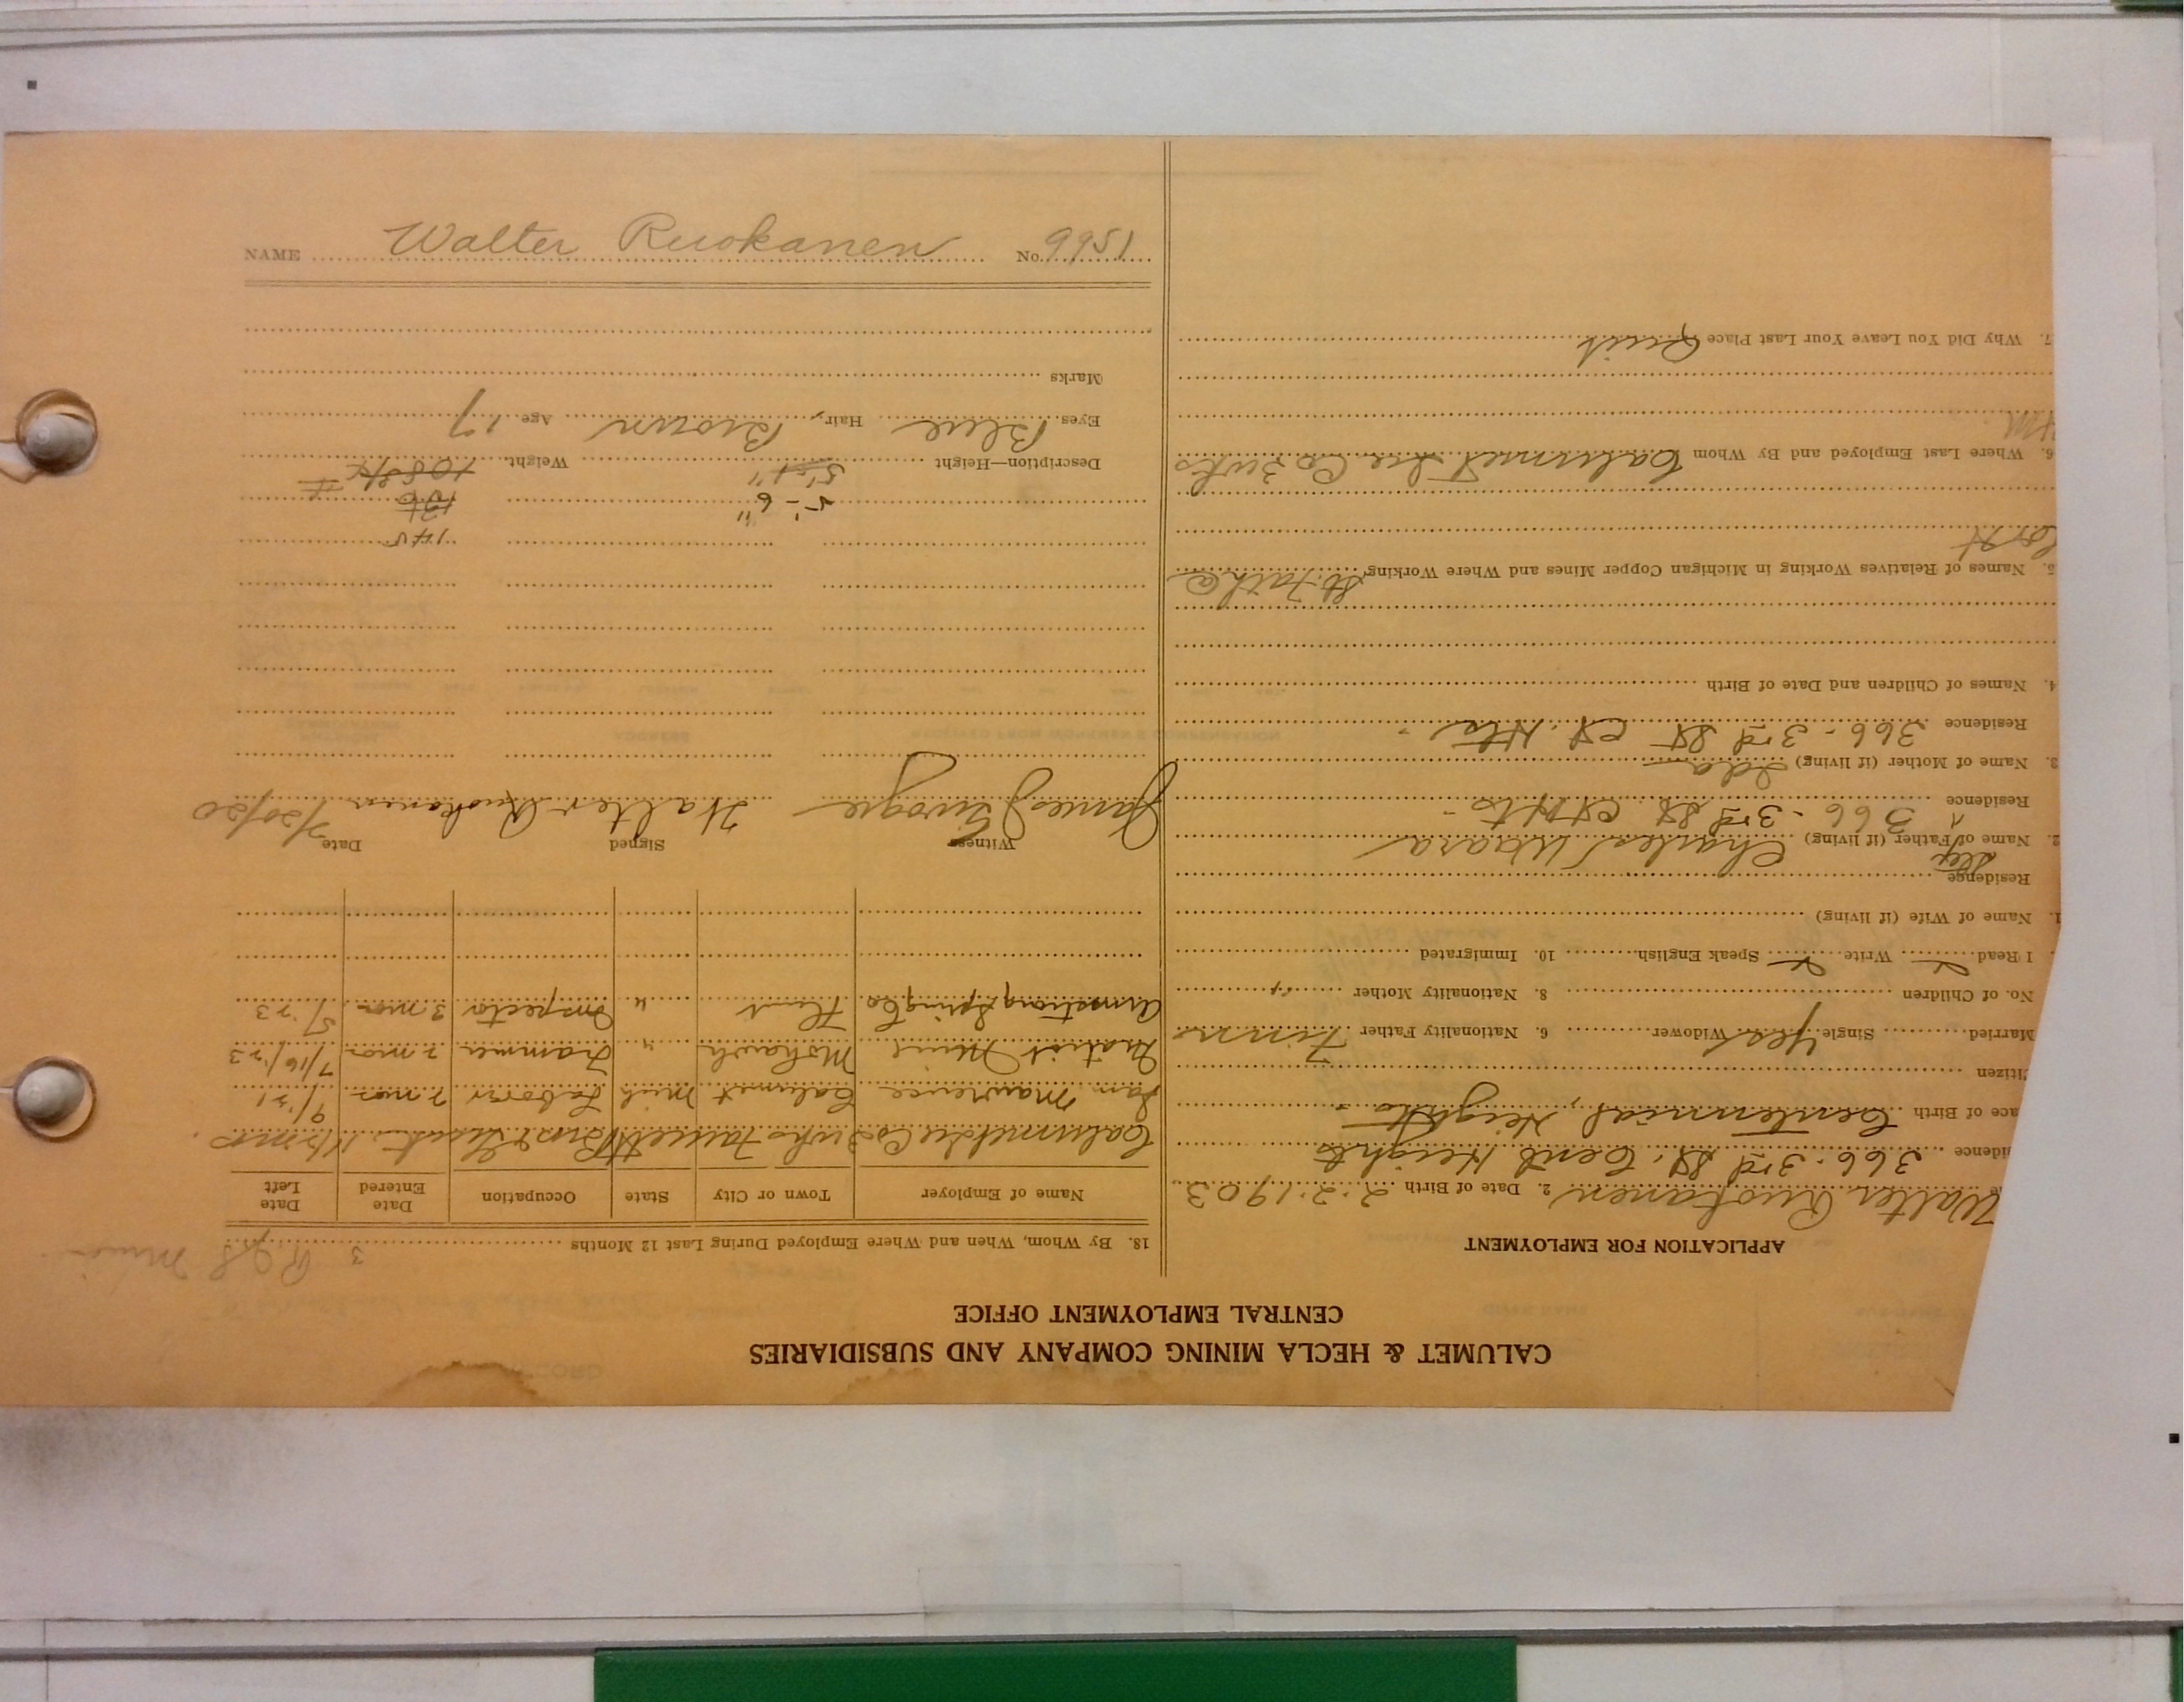 CALUMET & HECLA MINING COMPANY AND SUBSIDIARIES
CENTRAL EMPLOYMENT OFFICE
APPLICATION FOR EMPLOYMENT
Walter Ruokanen 2. Date of Birth 2-2-1903
idence 366-3rd St. Cent Heights
ace of Birth Centennial, Heights
itizen
Married Single Yes Widower 6. Nationality Father Finn
No. of Children 8. Nationality Mother "
I Read Write Speak English 10. Immigrated
1. Name of Wife (if living)
Residence
2. Name of Step Father (if living) Charles Waara
Residence 366-3rd St Ct Hts
3. Name of Mother (if living) Ida
Residence 366-3rd St Ct. Hts
4. Names of Children and Date of Birth
5. Names of Relatives Working in Michigan Copper Mines and Where Working St. Father
6. Where Last Employed and By Whom Calumet Ice Co 3 wks
7. Why Did You Leave Your Last Place Quit
18. By Whom, When and Where Employed During Last 12 Months
Name of Employer Town or City State Occupation Date Entered Date Left
Calumet Ice Co 3 wks
Sam Mawrence Calumet Mich Laborer 2 mos 9/21
Mohawk " Trammer 2 mos 7/16/23
Armstrong Spring Co Flint " Inspector 3 mos 5/23
Witness Signed Date
James Walter Ruokanen 7/20/20
145
5'-6" 136
Description—Height 5'-1" Weight 108
Eyes Blue Hair Brown Age 17
Marks
NAME Walter Ruokanen No. 9951